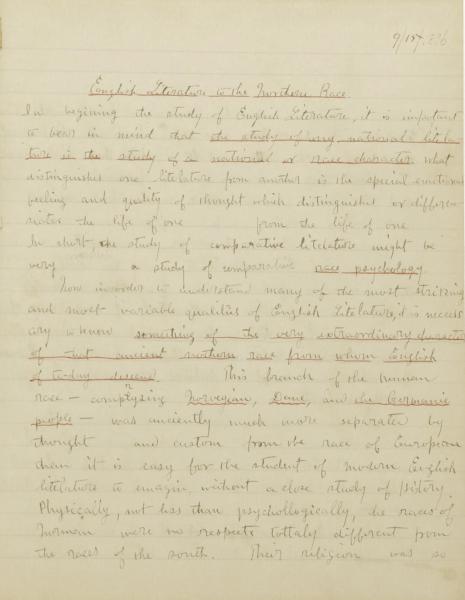 9/15/
English Literature to the Northern Race
In begining the study of English Literature, it is important
to bear in mind that the study of any national litela-
ture is the study of a national or race character what
distinguishes one litelature from another is the special emotional
feeling and quality of thought which distinguishes or differen-
siates the life of one from the life of one
In short, the study of comparative litelature might be
very a study of comparative race psychology.
Now in order to understand many of the most striking
and most variable qualities of English Literature, is necess
ary to know something of the very extraordinary character
of that ancient northern race from whom English
of to-day descend. This branch of the human
race — comprysing Norvegian, Dane, and the Germanic
people — was anciently much more separated by
thought and custom from the race of European
them it is easy for the student of modern English
litelature to emagin without a close study of History.
Physically, not less than psychollogically, the races of
Norman were no respects tottaly different from
the races of the south. Their religion was so